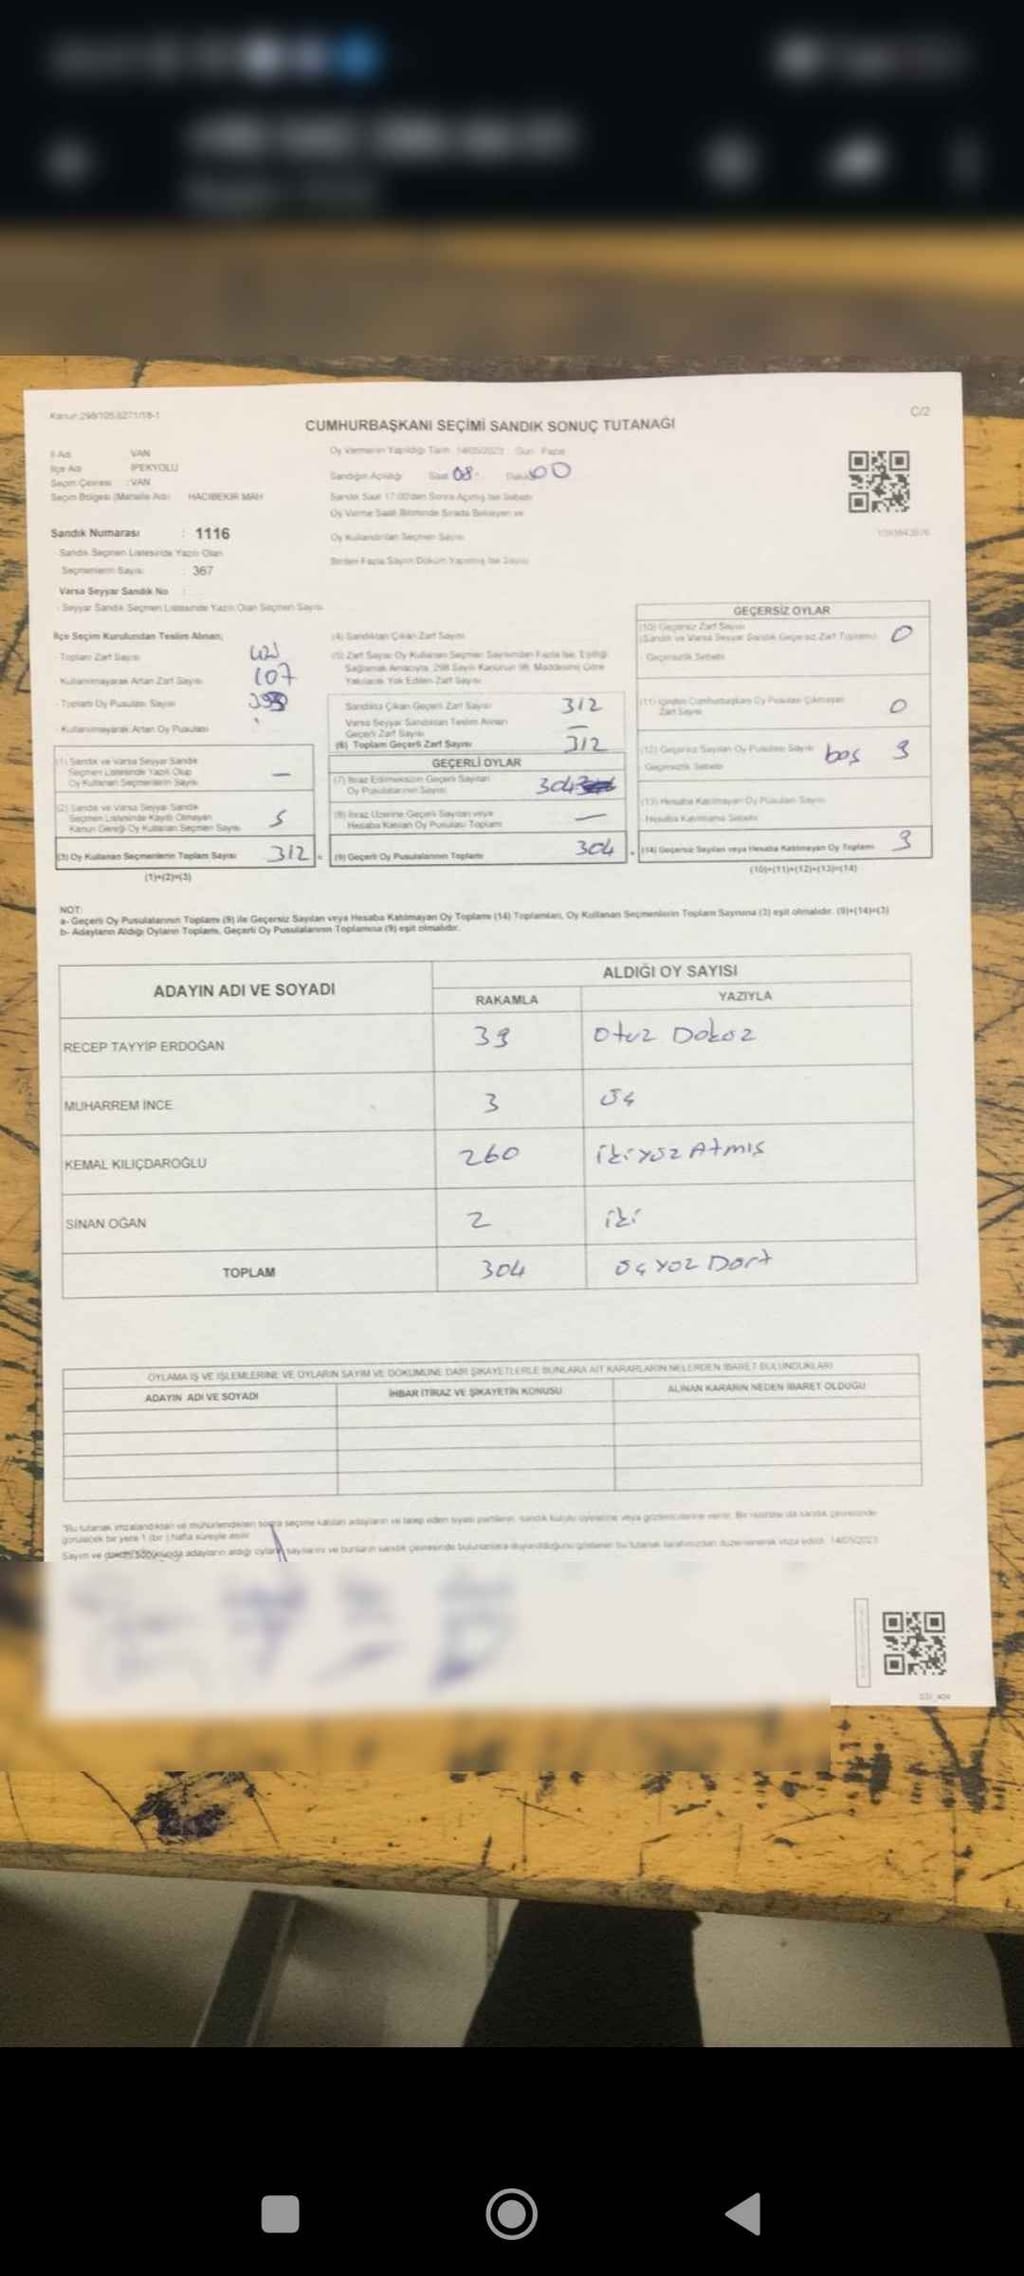 Kanun:298/105,6271/18-1
C/2
CUMHURBAŞKANI SEÇİMİ SANDIK SONUÇ TUTANAĞI
İl Adı VAN
İlçe Adı İPEKYOLU
Seçim Çevresi : VAN
Seçim Bölgesi (Mahalle Adı) HACIBEKİR MAH
Sandık Numarası : 1116
Sandık Seçmen Listesinde Yazılı Olan
Seçmenlerin Sayısı : 367
Varsa Seyyar Sandık No :
Seyyar Sandık Seçmen Listesinde Yazılı Olan Seçmen Sayısı
Oy Vermenin Yapıldığı Tarih 14/05/2023 Gün Pazar
Sandığın Açıldığı Saat 08 00
Sandık Saat 17:00'den Sonra Açılmış İse Sebebi
Oy Verme Saati Bitiminde Sırada Bekleyen ve
Oy Kullandırılan Seçmen Sayısı
Birden Fazla Sayım Döküm Yapılmış İse Sayısı
İlçe Seçim Kurulundan Teslim Alınan;
Toplam Zarf Sayısı
Kullanılmayarak Artan Zarf Sayısı 107
Toplam Oy Pusulası Sayısı
Kullanılmayarak Artan Oy Pusulası
(1) Sandık ve Varsa Seyyar Sandık
Seçmen Listesinde Yazılı Olup
Oy Kullanan Seçmenlerin Sayısı —
(2) Sandık ve Varsa Seyyar Sandık
Seçmen Listesinde Kayıtlı Olmayan
Kanun Gereği Oy Kullanan Seçmen Sayısı 5
(3) Oy Kullanan Seçmenlerin Toplam Sayısı 312
(1)+(2)=(3)
(4) Sandıktan Çıkan Zarf Sayısı
(5) Zarf Sayısı Oy Kullanan Seçmen Sayısından Fazla İse, Eşitliği
Sağlamak Amacıyla, 298 Sayılı Kanunun 98. Maddesine Göre
Yakılarak Yok Edilen Zarf Sayısı
Sandıkta Çıkan Geçerli Zarf Sayısı 312
Varsa Seyyar Sandıktan Teslim Alınan
Geçerli Zarf Sayısı —
(6) Toplam Geçerli Zarf Sayısı 312
GEÇERLİ OYLAR
(7) İtiraz Edilmeksizin Geçerli Sayılan
Oy Pusulalarının Sayısı 304
(8) İtiraz Üzerine Geçerli Sayılan veya
Hesaba Katılan Oy Pusulası Toplamı —
(9) Geçerli Oy Pusulalarının Toplamı 304
GEÇERSİZ OYLAR
(10) Geçersiz Zarf Sayısı
(Sandık ve Varsa Seyyar Sandık Geçersiz Zarf Toplamı) 0
Geçersizlik Sebebi
(11) İçinden Cumhurbaşkanı Oy Pusulası Çıkmayan
Zarf Sayısı 0
(12) Geçersiz Sayılan Oy Pusulası Sayısı boş 3
Geçersizlik Sebebi
(13) Hesaba Katılmayan Oy Pusulası Sayısı
Hesaba Katılmama Sebebi
(14) Geçersiz Sayılan veya Hesaba Katılmayan Oy Toplamı 3
(10)+(11)+(12)+(13)=(14)
NOT:
a- Geçerli Oy Pusulalarının Toplamı (9) ile Geçersiz Sayılan veya Hesaba Katılmayan Oy Toplamı (14) Toplamları, Oy Kullanan Seçmenlerin Toplam Sayısına (3) eşit olmalıdır. (9)+(14)=(3)
b- Adayların Aldığı Oyların Toplamı, Geçerli Oy Pusulalarının Toplamına (9) eşit olmalıdır.
ADAYIN ADI VE SOYADI
ALDIĞI OY SAYISI
RAKAMLA YAZIYLA
RECEP TAYYİP ERDOĞAN 39 Otuz Dokuz
MUHARREM İNCE 3 Üç
KEMAL KILIÇDAROĞLU 260 ikiyüz Atmış
SİNAN OĞAN 2 iki
TOPLAM 304 Üçyüz Dört
OYLAMA İŞ VE İŞLEMLERİNE VE OYLARIN SAYIM VE DÖKÜMÜNE DAİR ŞİKAYETLERLE BUNLARA AİT KARARLARIN NELERDEN İBARET BULUNDUKLARI
ADAYIN ADI VE SOYADI İHBAR İTİRAZ VE ŞİKAYETİN KONUSU ALINAN KARARIN NEDEN İBARET OLDUĞU
"Bu tutanak imzalandıktan ve mühürlendikten sonra seçime katılan adayların ve talep eden siyasi partilerin, sandık kurulu üyelerine veya gözlemcilerine verilir. Bir nüshası da sandık çevresinde
görülecek bir yere 1 (bir) hafta süreyle asılır
Sayım ve döküm sonucunda adayların aldığı oyların sayılarını ve bunların sandık çevresinde bulunanlara duyurulduğunu gösteren bu tutanak tarafımızdan düzenlenerek imza edildi. 14/05/2023